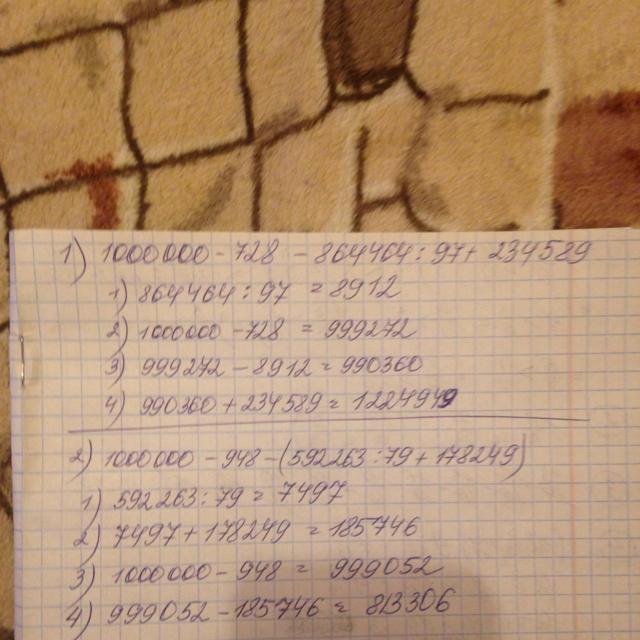 1) 1000000 - 728 - 864464 : 97 + 234589
1) 864464 : 97 = 8912
2) 1000000 - 728 = 999272
3) 999272 - 8912 = 990360
4) 990360 + 234589 = 1224949
2) 1000000 - 948 - (592263 : 79 + 178249)
1) 592263 : 79 = 7497
2) 7497 + 178249 = 185746
3) 1000000 - 948 = 999052
4) 999052 - 185746 = 813306